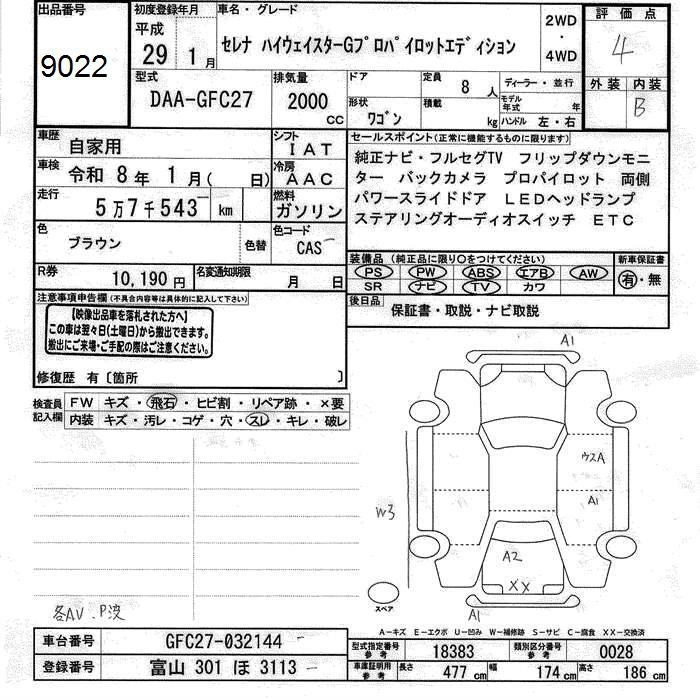 出品番号
9022
初度登録年月
平成
29年 1月
車名・グレード
セレナ ハイウェイスターGプロパイロットエディション
2WD
・
4WD
評価点
4
外装 内装
B
型式
DAA-GFC27
排気量
2000
cc
ドア
形状
ワゴン
定員
8人
積載
kg
ディーラー・並行
モデル年式 年
ハンドル 左・右
車歴
自家用
シフト
IAT
車検
令和 8年 1月( 日)
冷房
AAC
走行
5万7千543 km
燃料
ガソリン
色
ブラウン
色替
色コード
CAS
R券
10,190円
名変通知期限
月 日
セールスポイント(正常に機能するものに限ります)
純正ナビ・フルセグTV フリップダウンモニ
ター バックカメラ プロパイロット 両側
パワースライドドア LEDヘッドランプ
ステアリングオーディオスイッチ ETC
装備品(純正品に限り○をつけてください)
PS PW ABS エアB AW
SR ナビ TV カワ
新車保証書
有・無
後日品
保証書・取説・ナビ取説
注意事項申告欄(不具合内容等は具体的に記入して下さい)
【映像出品車を落札された方へ】
この車は翌々日(土曜日)から搬出できます。
搬出にご来場・ご手配の際はご注意ください。
修復歴 有〔箇所 〕
検査員記入欄
FW キズ・飛石・ヒビ割・リペア跡・×要
内装 キズ・汚レ・コゲ・穴・スレ・キレ・破レ
A1
ウスA
A1
W3
A2
XX
A1
スペア
各AV、P波
A-キズ E-エクボ U-凹み W-補修跡 S-サビ C-腐食 XX-交換済
車台番号
GFC27-032144
登録番号
富山 301 ほ 3113
型式指定番号 参考
18383
類別区分番号 参考
0028
車庫証明用 参考
長さ 477 cm
幅 174 cm
高さ 186 cm